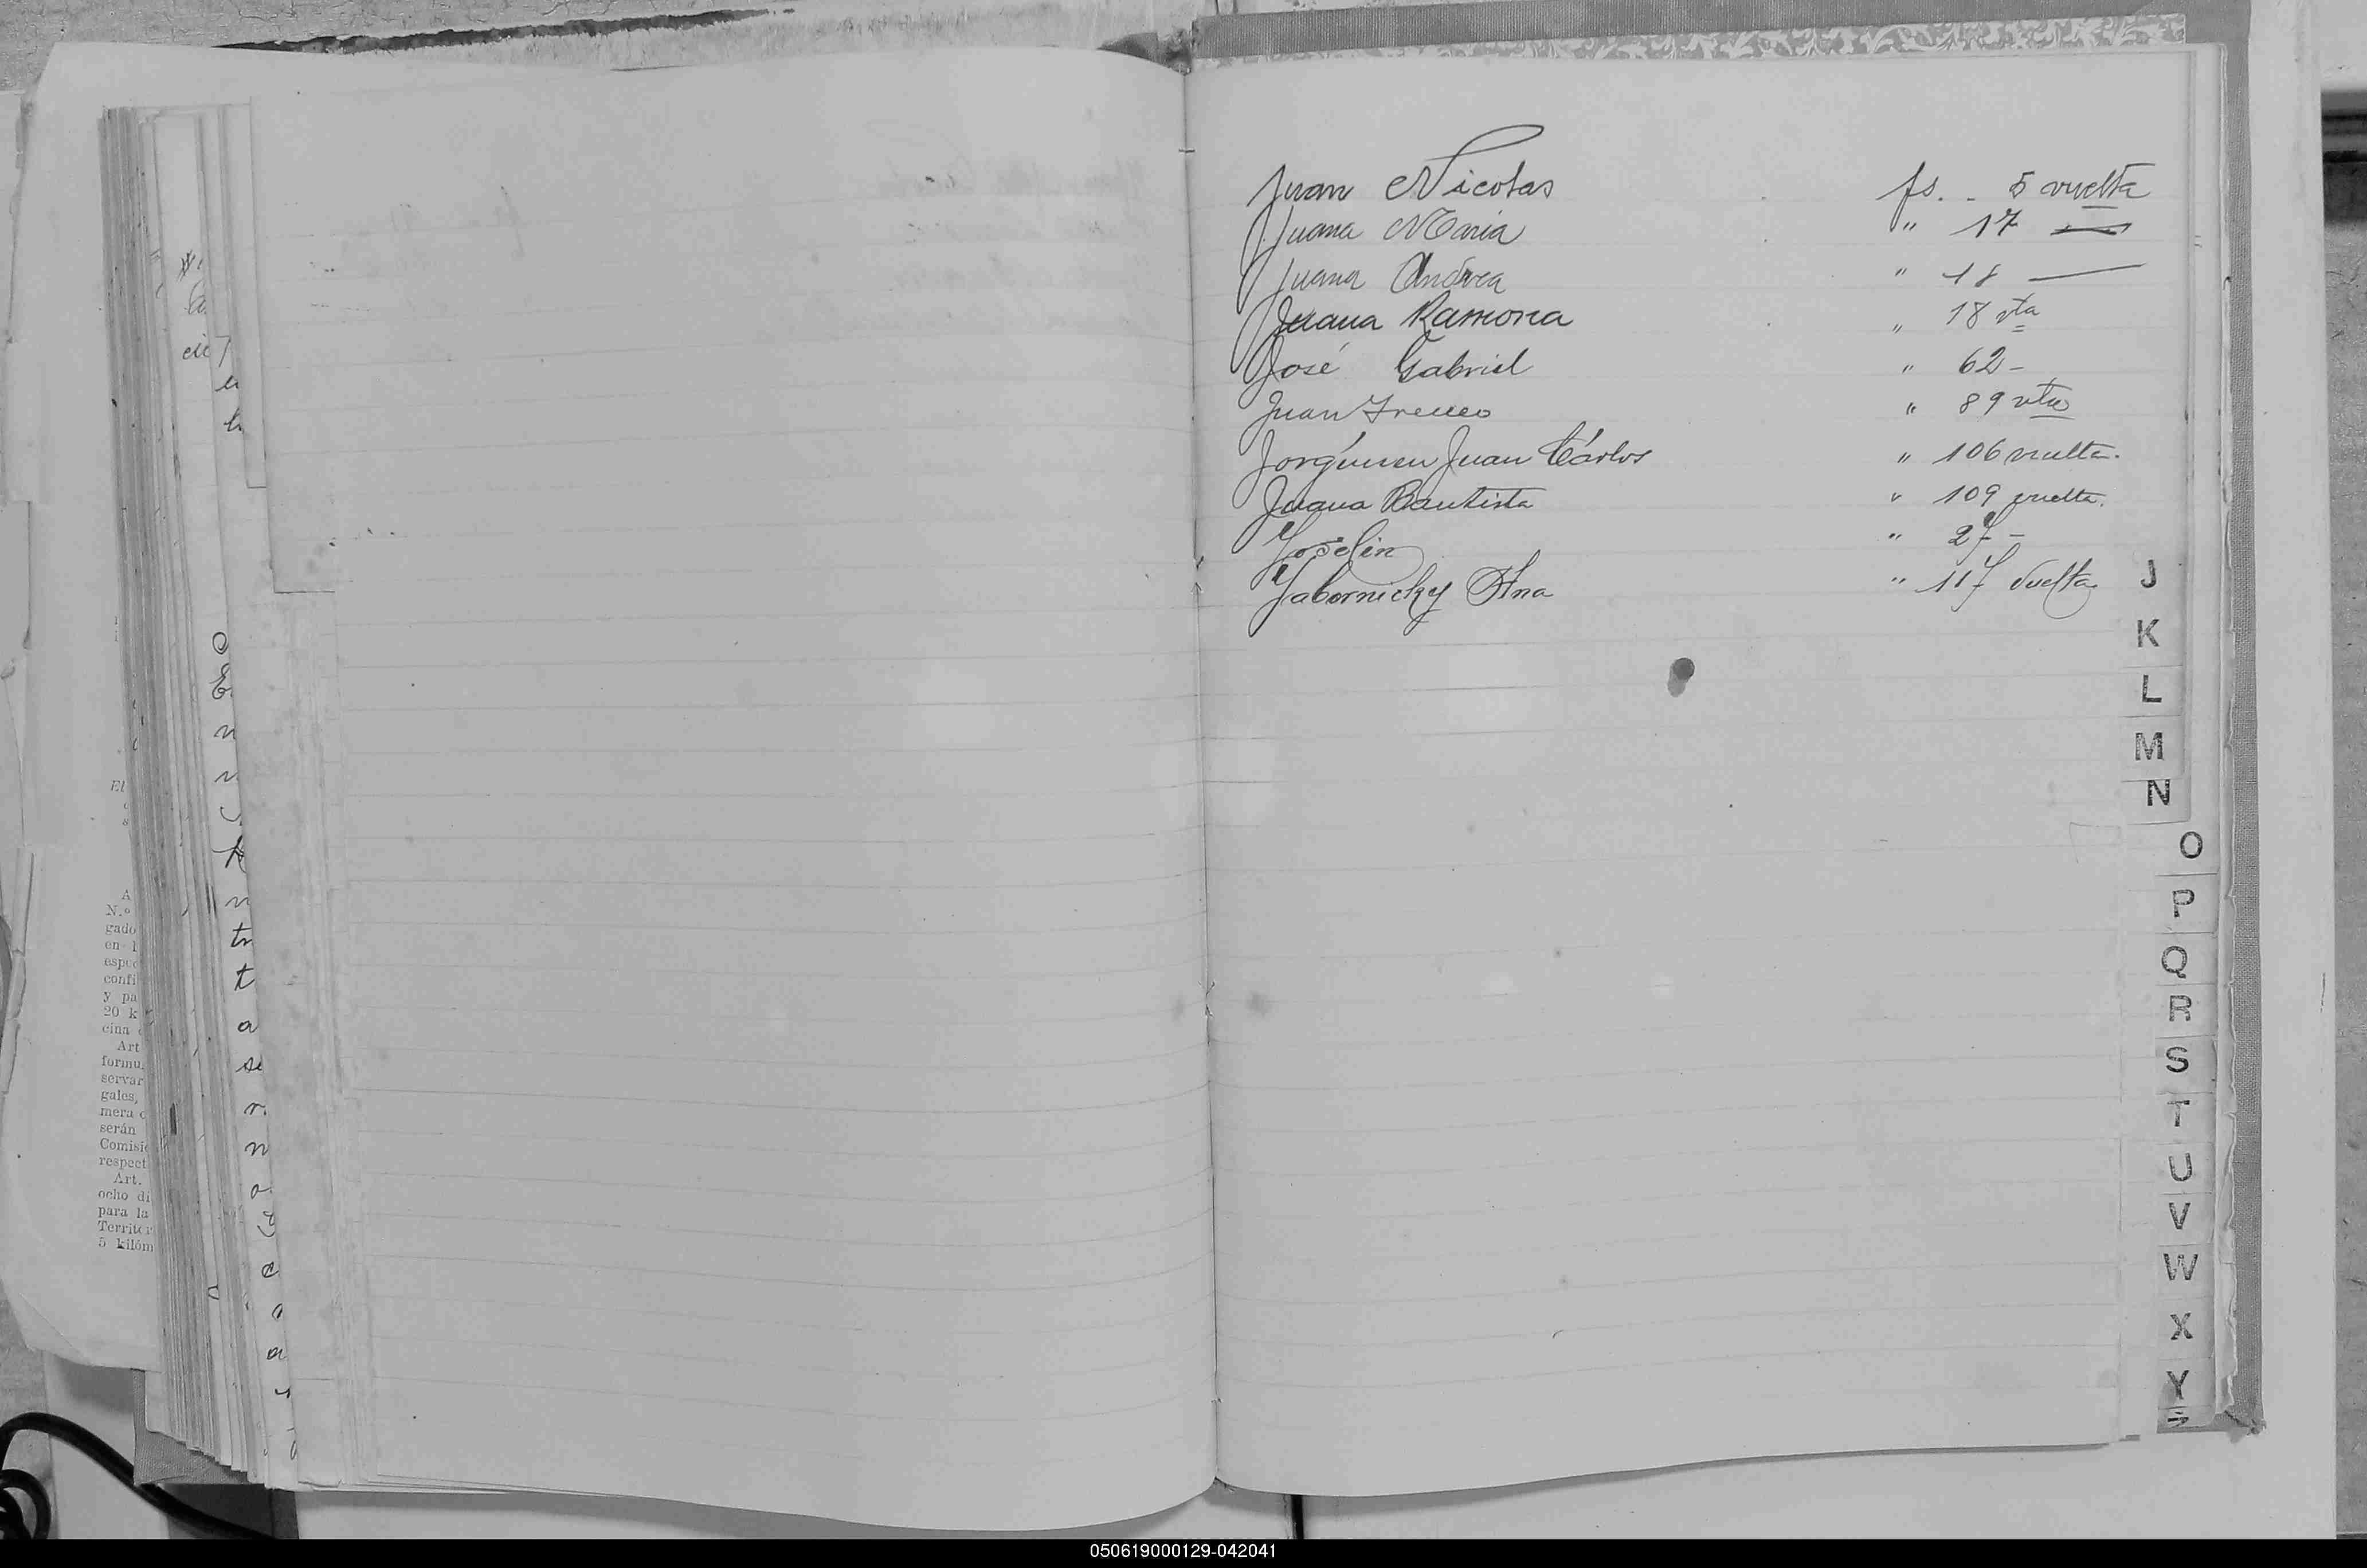 Juan Nicolas fs. . 5 vuelta
Juana Maria " 17 —
Juana Andrea " 18 —
Juana Ramona " 18 vta
José Gabriel " 62 -
Juan Ireneo " 89 vta
Jorgensen Juan Cárlos " 106 vuelta.
Juana Bautista " 109 vuelta.
Joselin " 27 -
Jabornicky Ana " 117 vuelta
J
K
L
M
N
O
P
Q
R
S
T
U
V
W
X
Y
Z
El
A
N.º
gado
en l
espec
confi
y pa
20 k
cina
Art
formu
servar
gales,
mera
serán
Comisi
respect
Art.
ocho di
para la
Territor
5 kilóm
050619000129-042041